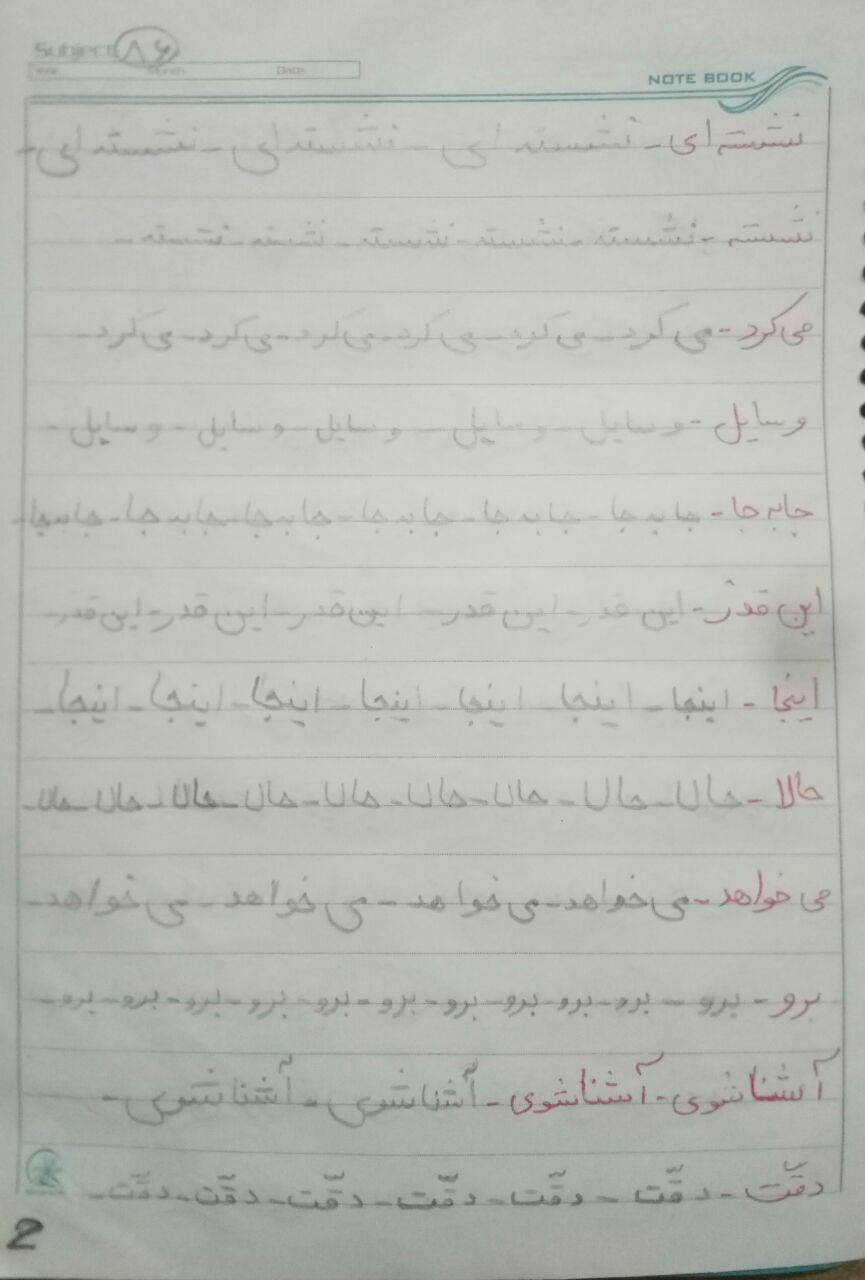 Subject: ۸۶
Month Date:
NOTE BOOK
نشسته ای - نشسته ای - نشسته ای - نشسته ای -
نشسته - نشسته - نشسته - نشسته - نشسته - نشسته -
می کرد - می کرد - می کرد - می کرد - می کرد - می کرد - می کرد -
وسایل - وسایل - وسایل - وسایل - وسایل - وسایل -
جا به جا - جا به جا - جا به جا - جا به جا - جا به جا - جا به جا - جا به جا
این قدر - این قدر - این قدر - این قدر - این قدر - این قدر -
اینجا - اینجا - اینجا - اینجا - اینجا - اینجا - اینجا - اینجا -
حالا - حالا - حالا - حالا - حالا - حالا - حالا - حالا - حالا -
می خواهد - می خواهد - می خواهد - می خواهد - می خواهد -
برو - برو - برو - برو - برو - برو - برو - برو - برو - برو - برو - برو -
آشنا شوی - آشنا شوی - آشنا شوی - آشنا شوی -
دقّت - دقّت - دقّت - دقّت - دقّت - دقّت - دقّت -
2